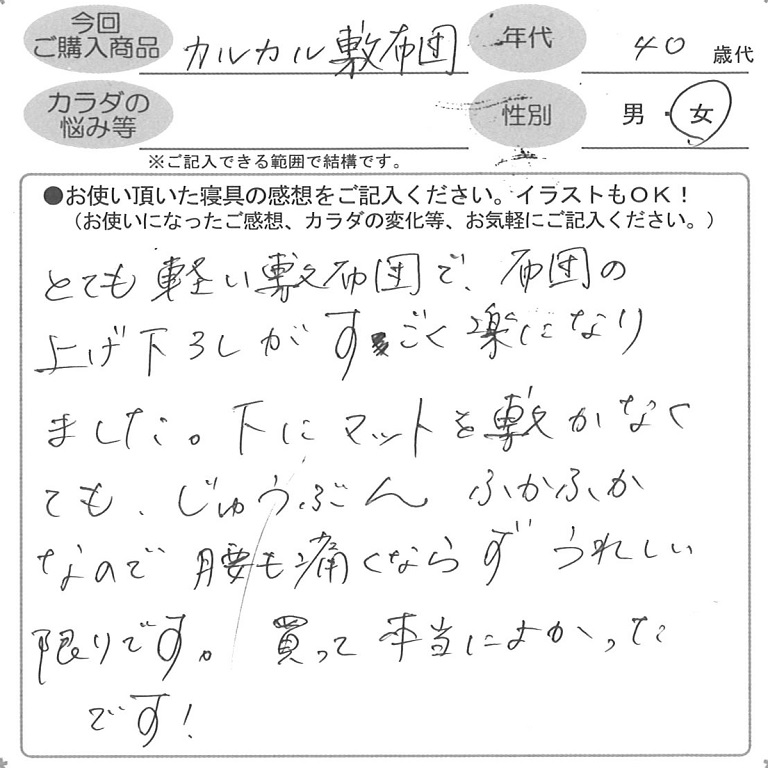 今回
ご購入商品 カルカル敷布団 年代 40 歳代
カラダの
悩み等 性別 男・女
※ご記入できる範囲で結構です。
●お使い頂いた寝具の感想をご記入ください。イラストもOK！
（お使いになったご感想、カラダの変化等、お気軽にご記入ください。）
とても軽い敷布団で、布団の
上げ下ろしがすごく楽になり
ました。下にマットを敷かなく
ても、じゅうぶん ふかふか
なので腰も痛くならず うれしい
限りです。買って本当によかった
です！